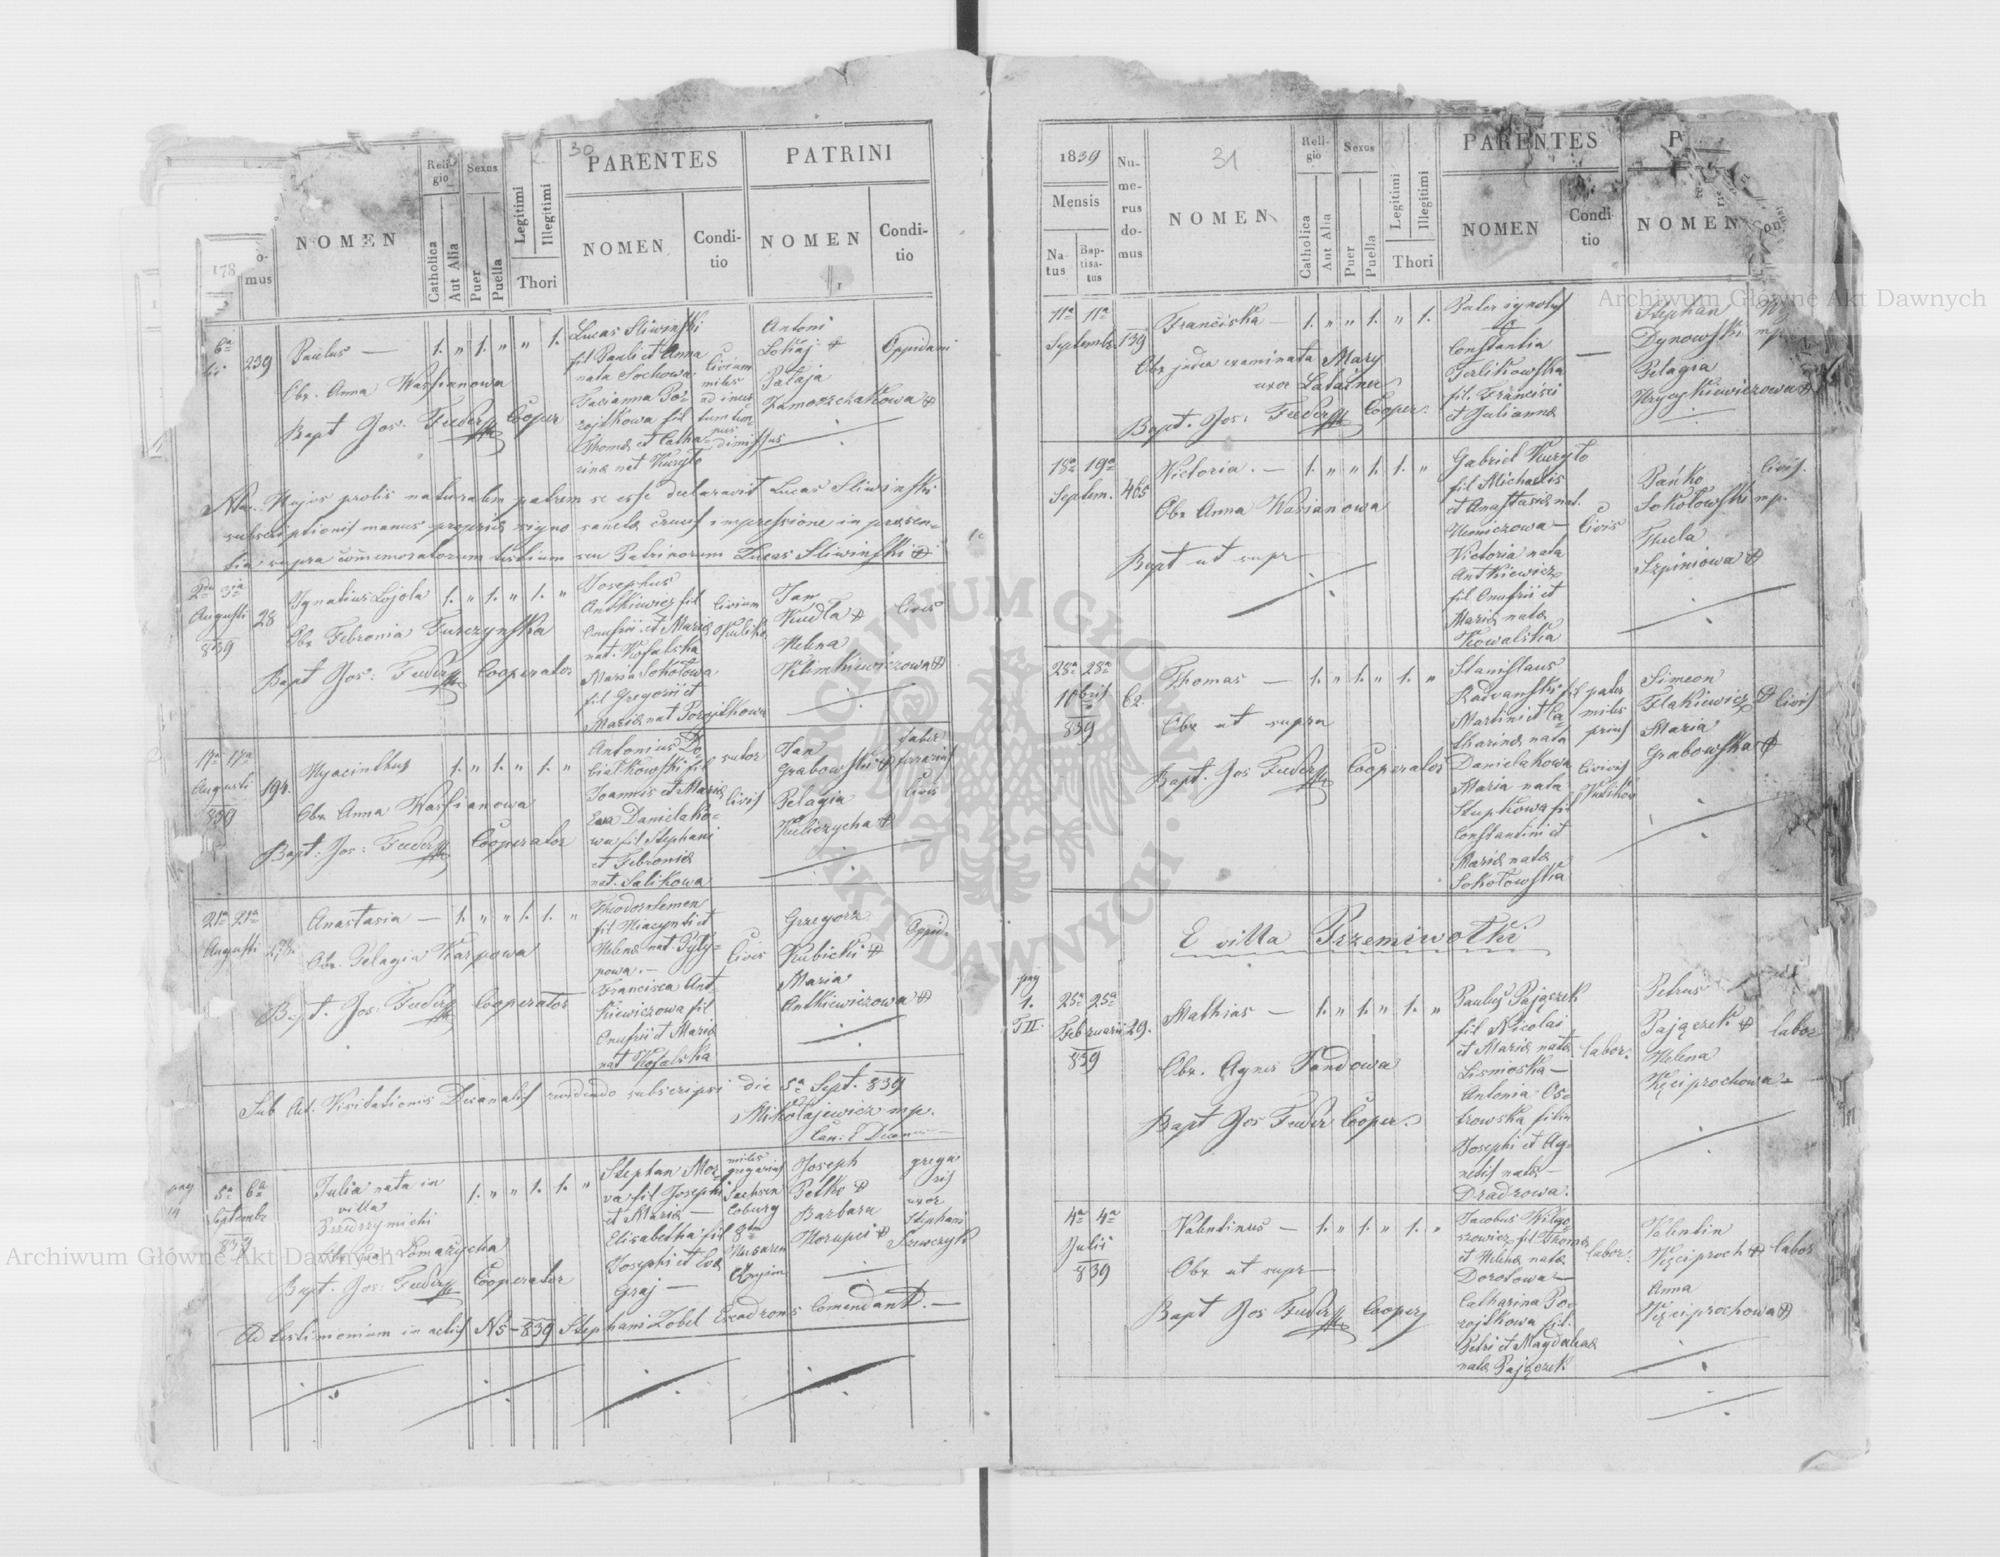 30
PARENTES
PATRINI
Reli-
gio
Sexus
Legitimi
Illegitimi
Thori
178
o-
mus
NOMEN
Catholica
Aut Alia
Puer
Puella
NOMEN
Condi-
tio
NOMEN
Condi-
tio
6a
239
Paulus —
1. „ 1. „ „ 1.
Obx. Anna Wassianowa
Bapt Jos: Fueder Cooper
Lucas Sliwinski
fil Pauli et Anna
nata Sochowa
Tacianna Po-
rojtkowa fil
Thomæ et Catha-
rinæ nat Kuryło
Civium
miles
Antoni
Pataja
Zamorzczakowa
Oppidani
Nb. Hujus prolis naturalem patrem se esse declaravit Lucas Sliwinski
subscriptionis manus propriæ signo sanctæ crucis impressione in præsen-
tia supra commemoratorum testium seu Patrinorum Lucas Sliwinski
2da 3ia
Augusti
839
28
Ignatius Lojola
1. „ 1. „ 1. „
Obx Febronia Turczynska
Bapt Jos: Fueder Cooperator
Josephus
Antkiewicz fil
Onufrii et Mariæ
nat. Kofalska
Maria Sokołowa
fil Gregorii et
Mariæ nat Porojtkowa
Civium
Kuliko.
Jan
Kudła
Helena
Klimkiewiczowa
Civis
17a 17a
Augusti
839
194.
Hyacinthus
1. „ 1. „ 1. „
Obx Anna Wassianowa
Bapt: Jos: Fueder Cooperator
Antonius Do
białkowski fil
Joannis et Mariæ
Eva Danielako-
wa fil Stephani
et Febroniæ
nat. Salikowa
sutor
Civis
Jan
Grabowski
Pelagia
Kuliczycha
faber
ferrarius
Civis
21a 21a
Augusti
278.
Anastasia —
1. „ „ 1. 1. „
Obx. Pelagia Karpowa
Bapt. Jos: Fueder Cooperator
Theodor Semen
fil Hiacynti et
Helenæ nat. Pyty-
powa. —
Francisca Ant-
kiewiczowa fil
Onufrii et Mariæ
nat Kofalska
Civis
Grzegorz
Kubicki
Maria
Antkiewiczowa
Oppid.
Sub Act. Visitationis Decanalis revidendo subscripsi die 5a Sept. 839
Mikołajewicz mp.
Can: E Decanus
5a 6a
Septembr
839
Julia nata in
villa
Przedrzymichi
1. „ „ 1. 1. „
Tomaszycha
Bapt. Jos: Fueder Cooperator
Stephan Mor
va fil Josephi
et Mariæ —
Elisabetha fil
Josephi et Evæ
Graj —
miles
gregarius
Sachsen
Coburg
8tm
Husaren
Regim
Joseph
Petko
Barbara
Horupei
grega
rius
uxor
Stephani
Szewczyk
Ad testimonium in actis No 5 — 839 Stephani Zobel Escadrons Comendant. —
1839
Nu-
me-
rus
do-
mus
31
Reli-
gio
Sexus
Legitimi
Illegitimi
PARENTES
P
Mensis
Na-
tus
Bap-
tisa-
tus
NOMEN
Catholica
Aut Alia
Puer
Puella
Thori
NOMEN
Condi-
tio
NOMEN
11a 11a
Septembr.
139
Franciska —
1. „ „ 1. „ 1.
Obx judea examinata Mary
uxor Latainer
Bapt. Jos: Fueder Cooper.
Pater ignotus
Constantia
Terlikowska
fil. Francisci
et Julianna
—
Stephan
Dynowski mp.
Pelagia
Hrycykiewiczowa
18a 19a
Septem.
465
Victoria. —
1. „ „ 1. 1. „
Obx Anna Wasianowa
Bapt ut supr
Gabriel Kuryło
fil Michaelis
et Anastasiæ nat.
Niemiczowa —
Victoria nata
Antkiewicz
fil Onufrii et
Mariæ natæ
Kowalska
Civis
Pańko
Sokołowski mp.
Thecla
Szpiniowa
Civis.
28a 28a
10bris
839
62.
Thomas —
1. „ 1. „ 1. „
Obx ut supra
Bapt. Jos Fueder Cooperator
Stanislaus
Radvanski fil
Martini et Ca-
tharinæ nata
Danielakowa
Maria nata
Stupkowa fil
Constantini et
Mariæ natæ
Sokołowska
pater
miles
prius
Civis
Kulikow
Simeon
Flakiewicz
Maria
Grabowska
Civis
E villa Przemiwołki
pag
1.
T II.
25a 25a
Februarii
839
29.
Mathias —
1. „ 1. „ 1. „
Obx. Agnes Fandowa
Bapt Jos Fueder Cooper.
Paulus Pajączek
fil Nicolai
et Mariæ natæ
Lismoska —
Antonia Os-
trowska filia
Josephi et Ag-
netis natæ —
Dradrowa.
labor.
Petrus
Pajączek
Helena
Kęciprochowa
labor
4a 4a
Julii
839
Valentinus —
1. „ 1. „ 1. „
Obx ut supr —
Bapt Jos Fueder Cooper
Jacobus Wilgo-
szowicz fil Thomæ
et Helenæ natæ
Dorotowa —
Catharina Po-
rojtkowa fil.
Petri et Magdalenæ
natæ Pajączek
labor.
Valentin
Kęciproch
Anna
Kęciprochowa
labor
Archiwum Główne Akt Dawnych
Archiwum Główne Akt Dawnych
ARCHIWUM GŁÓWNE AKT DAWNYCH